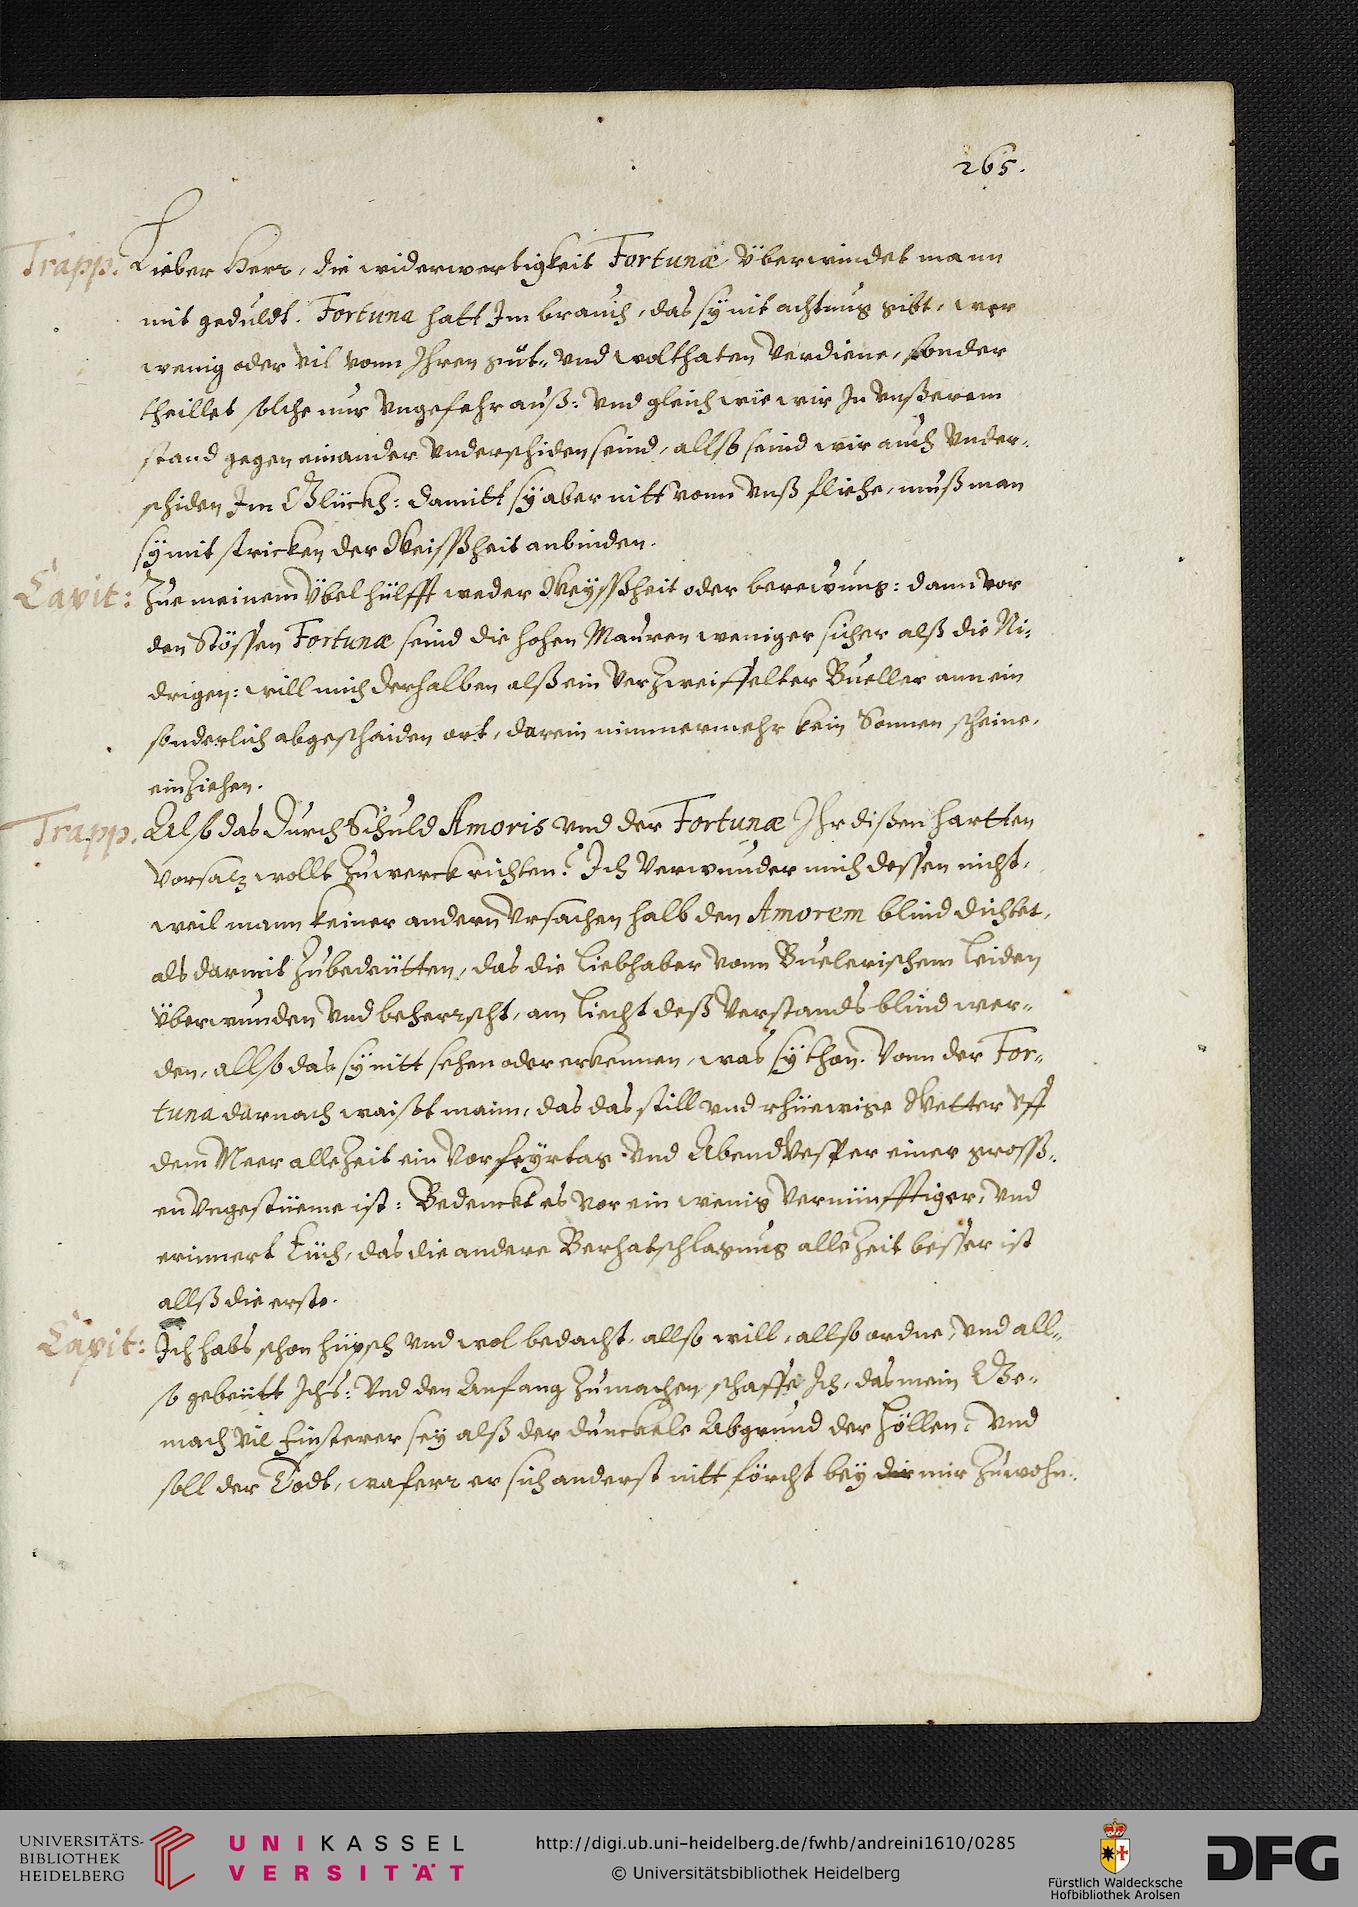 265.
Trapp. Lieber Herr, die widerwertigkeit Fortunæ überwindet mann
mit geduldt. Fortuna hatt Im brauch, das sy nit achtung gibt, wer
wenig oder vil vonn Ihren gut- und wolthaten verdiene, sonder
theillet solche nur ungefehr auß: und gleich wie wir In unßerem
stand gegen einander underschiden seind, allso seind wir auch under-
schiden Im Glückh: damitt sy aber nitt vonn unß fliehe, muß man
sy mit stricken der Weissheit anbinden.
Capit: Zue meinem übel hülfft weder Weyssheit oder berewung: dann vor
den Stössen Fortunæ seind die hohen Mauren weniger sicher alß die Ni-
drigen: will mich derhalben alß ein verzweiffelter Bueller ann ein
sonderlich abgeschaiden ort, darein nimmermehr kein Sonnen scheine,
einziehen.
Trapp. Also das durch Schuld Amoris und der Fortunæ Ihr dißen hartten
vorsatz wollt zu werck richten? Ich verwunder mich dessen nicht,
weil mann keiner andern ursachen halb den Amorem blind dichtet,
als darmit zubedeütten, das die liebhaber vonn Buelerischem leiden
überwunden und beherrscht, am liecht deß verstands blind wer-
den, allso das sy nitt sehen oder erkennen, was sy thon. Vonn der For-
tuna darnach waist mann, das das still und rhüewige Wetter uff
dem Meer allezeit ein vorfeyrtag und Abend Vesper einer gross-
en ungestüeme ist: Bedenckt es vor ein wenig vernünfftiger, und
erinnert Euch, das die andere Berhatschlagung allezeit besser ist
allß die erste.
Capit: Ich habs schon hüpsch und wol bedacht, allso will, allso ordne, und all-
so gebeütt Ichs: Und den Anfang zumachen schaffe Ich, das mein Ge-
mach vil finsterer sey alß der dunckele Abgrund der Höllen: und
soll der Todt, wa ferr er sich anderst nitt förcht bey dir mir zuwohn-
UNIVERSITÄTS-
BIBLIOTHEK
HEIDELBERG
UNIKASSEL
VERSITÄT
http://digi.ub.uni-heidelberg.de/fwhb/andreini1610/0285
© Universitätsbibliothek Heidelberg
Fürstlich Waldecksche
Hofbibliothek Arolsen
DFG